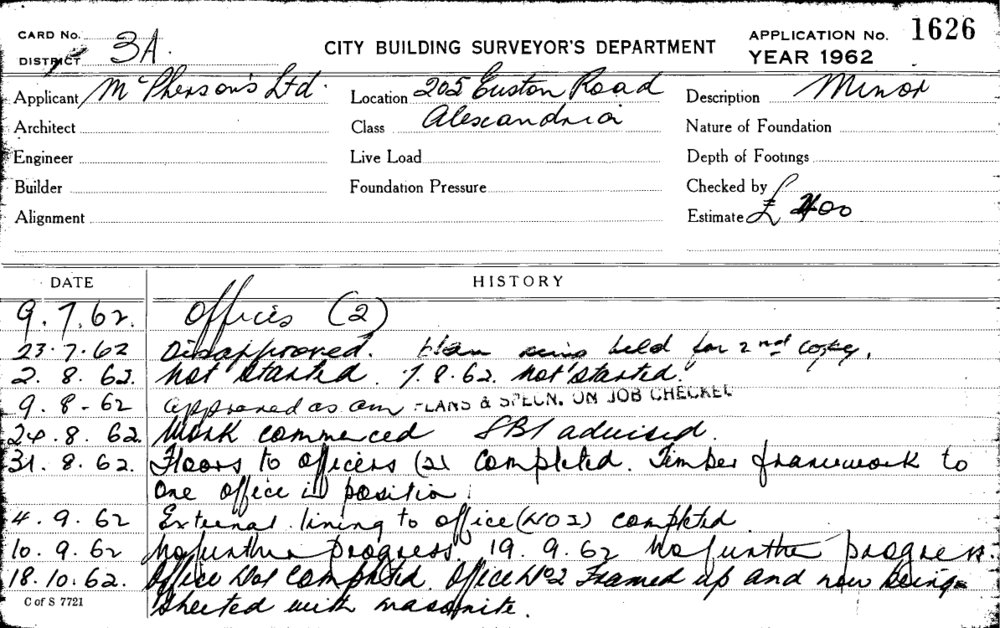 CARD No.
DISTRICT 3A.
CITY BUILDING SURVEYOR'S DEPARTMENT
APPLICATION No. 1626
YEAR 1962
Applicant McPherson's Ltd. Location 205 Euston Road Description Minor
Architect Class Alexandria Nature of Foundation
Engineer Live Load Depth of Footings
Builder Foundation Pressure Checked by
Alignment Estimate £ 400
DATE HISTORY
9.7.62. Offices (2)
23.7.62 Disapproved. Plan being held for 2nd copy.
2.8.62. Not started. 7.8.62. Not started.
9.8-62 approved as am PLANS & SPECN. ON JOB CHECKED
24.8.62. Work commenced SBI advised.
31.8.62. Floors to officers (2) completed. Timber framework to
one office in position
4.9.62 External lining to office (NO 1) completed
10.9.62 No further progress. 19.9.62 No further progress.
18.10.62. Office No1 completed. Office No2 framed up and now being
sheeted with masonite.
C of S 7721